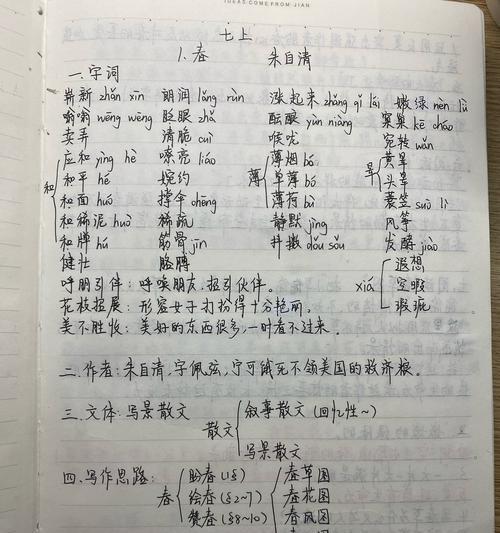 IDEAS COME FROM JIAN
七上
1.春 朱自清
一.字词
崭新 zhǎn xīn 朗润 lǎng rùn 涨起来 zhǎng qǐ lái 嫩绿 nèn lǜ
嗡嗡 wēng wēng 眨眼 zhǎ 酝酿 yùn niàng 窠巢 kē cháo
卖弄 清脆 cuì 喉咙 宛转 wǎn
和 应和 yìng hè 嘹亮 liáo 薄 薄烟 bó 晕 黄晕
和平 hé 婉约 单薄 bó 头晕
和面 huó 撑伞 chēng 薄荷 bò 蓑笠 suō lì
和稀泥 huò 稀疏 静默 jìng 风筝
和牌 hú 筋骨 jīn 抖擞 dǒu sǒu 发酵 jiào
健壮 胳膊 xiá 遐想
呼朋引伴：呼唤朋友，招引伙伴。 空暇
花枝招展：形容女子打扮得十分艳丽。 瑕疵
美不胜收：美好的东西很多，一时看不过来。
二.作者：朱自清，字佩弦，宁可饿死不领美国的救济粮。
三.文体：写景散文 散文 叙事散文（回忆性~）
写景散文
四.写作思路： 春 盼春（1§） 春草图
绘春（§2~7） 春花图
赞春（§8~10） 春风图